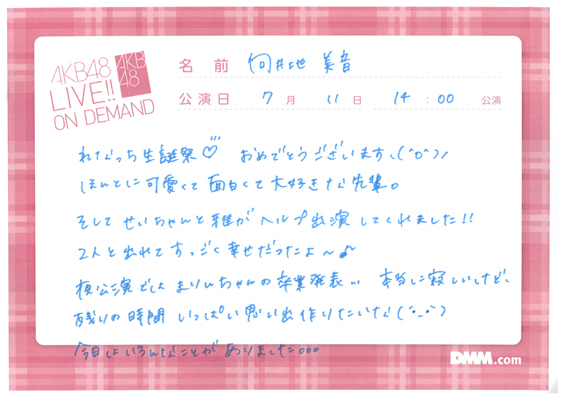 AKB48
LIVE!!
ON DEMAND
AKB
48
名 前 向井地 美音
公演日 7 月 11 日 14 : 00 公演
れなっち生誕祭♡ おめでとうございます、(^o^)/
ほんとに可愛くて面白くて大好きな先輩。
そして せいちゃんと 雅が ヘルプ出演 してくれました!!
2人と出れて す、ごく 幸せだったよ〜♪
夜公演では まりんちゃんの 卒業発表... 本当に寂しいけど、
残りの時間 いっぱい思い出作りたいな(´・_・`)
今日は いろんなことが ありました。。。
DMM.com